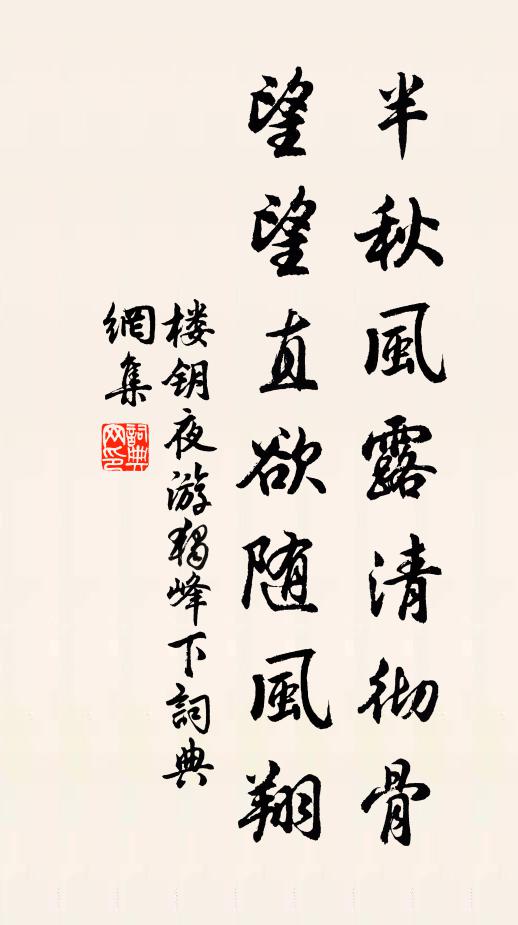 半秋風露清彻骨
望望直欲随風翔
楼钥夜游獨峰下詞典
網集
詞典网印